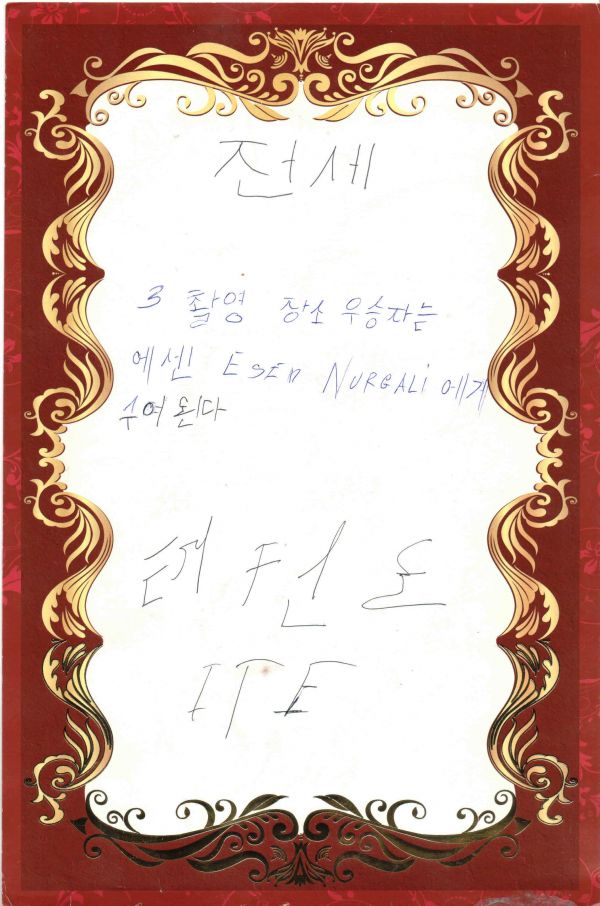 전세
3 촬영 장소 우승자는
에센 ESEN NURGALI 에게
수여 된다
태권도
ITF